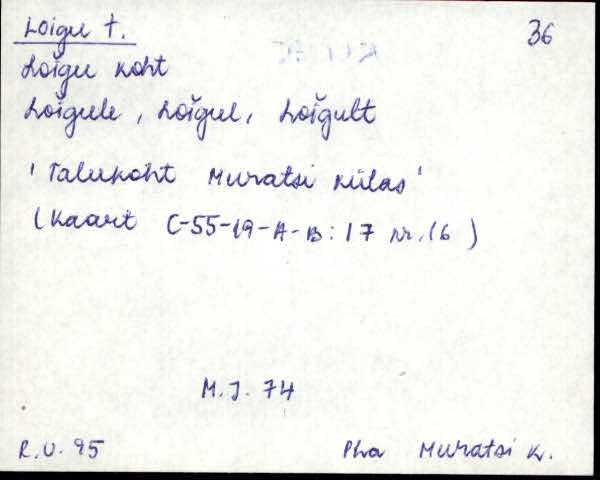 Loigu t. 36
Loĭgu koht
Loĭgule, Loĭgul, Loĭgult
'Talukoht Muratsi külas'
(Kaart C-55-19-A-B: 17 nr. 16)
M.J. 74
R.U. 95 Pha Muratsi k.